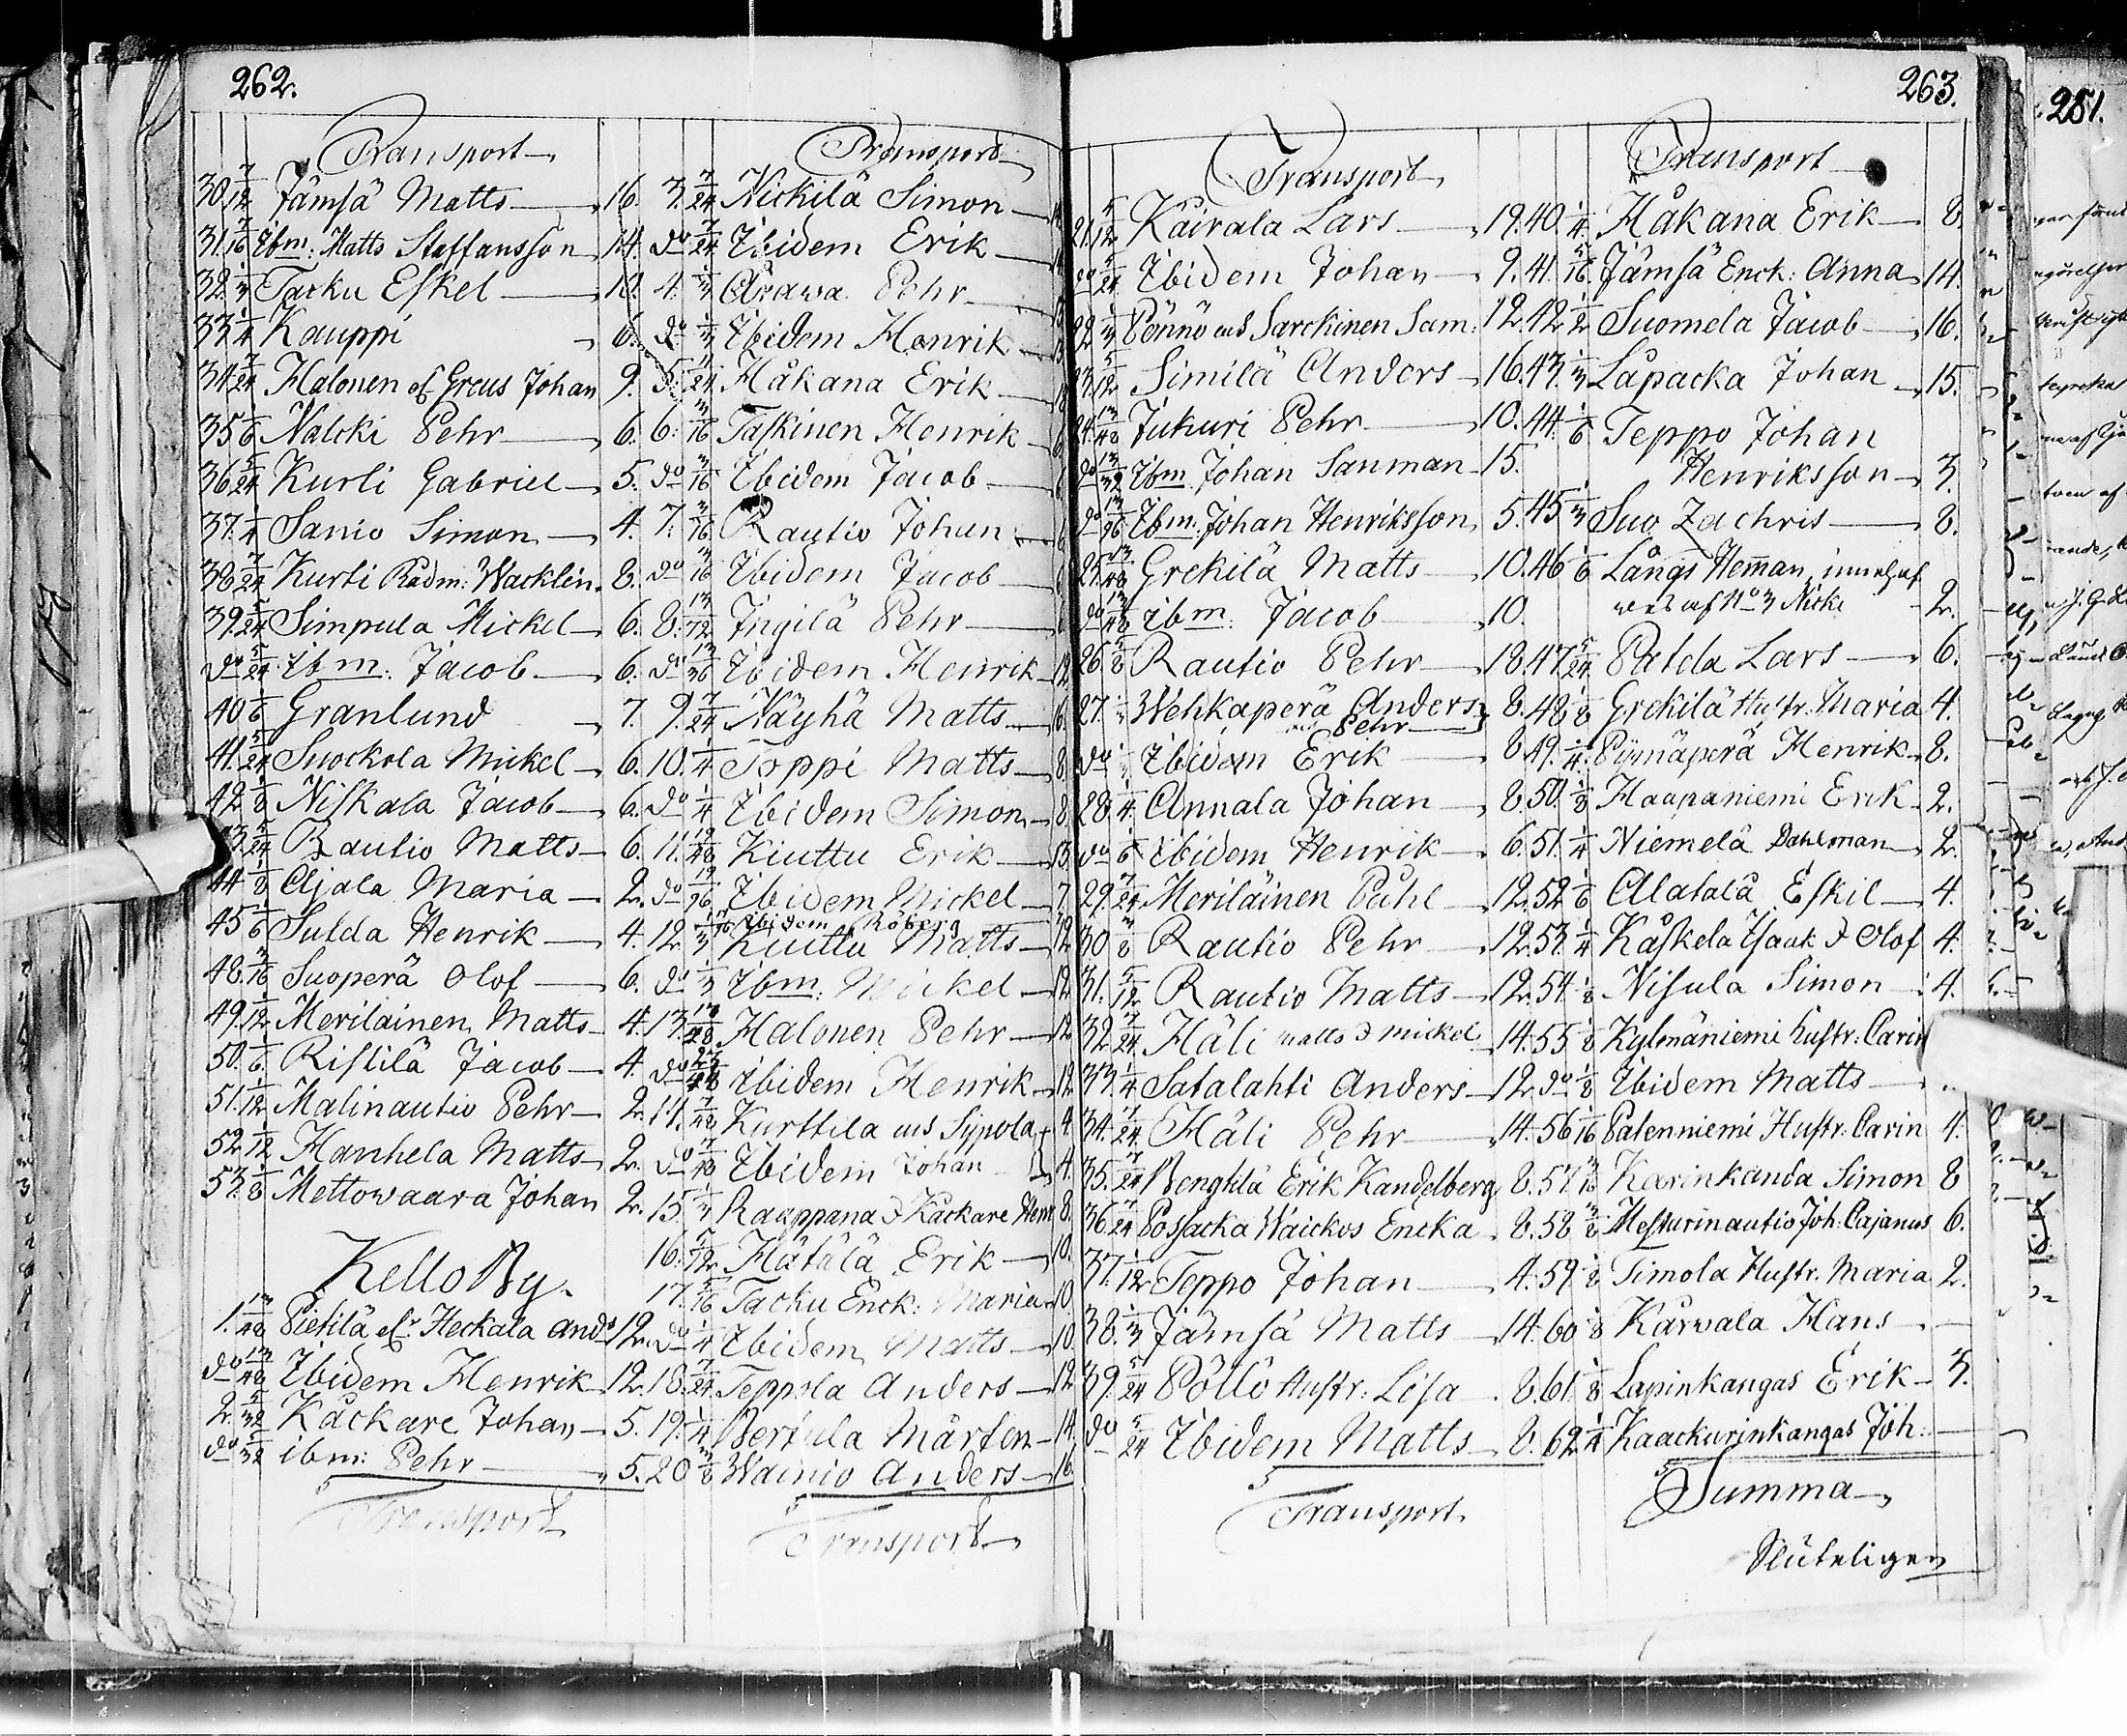 262.
Transport
30 7/12 Jämsä Matts 16.
31. 7/16 Ibm: Matts Staffansson 14.
32. 1/3 Tacku Eskel 10.
33 1/4 Kauppi 6.
34 7/24 Halonen el. Greus Johan 9.
35 1/6 Nalcki Pehr 6.
36 5/24 Kurti Gabriel 5.
37. 1/4 Sanio Simon 4.
38 7/24 Kurti Rådm: Wacklin 8.
39. 5/24 Simpula Mickel 6.
do 5/24 Ibm: Jacob 6.
40 1/6 Granlund 7.
41. 5/24 Suockola Mickel 6.
42 1/8 Niskala Jacob 6.
43 5/24 Rautio Matts 6.
44 1/8 Ajala Maria 2.
45 1/6 Sulda Henrik 4.
48. 3/16 Suoperä Olof 6.
49. 1/12 Meriläinen Matts 4.
50. 1/6 Ristilä Jacob 4.
51. 1/12 Malinautio Pehr 2.
52. 1/12 Hanhela Matts 2.
53. 1/8 Mettowaara Johan 2.
Kello By.
1. 13/48 Pietilä elr Heckala Ands 12.
do 13/48 Ibidem Henrik 12.
2. 5/32 Kackare Johan 5.
do 5/32 ibm: Pehr 5.
Transport
Transport
3. 7/24 Nickilä Simon
do 7/24 Ibidem Erik
4. 1/3 Arawa Pehr
do 1/3 Ibidem Henrik
5. 11/24 Håkana Erik
6. 3/16 Taskinen Henrik
do 3/16 Ibidem Jacob
7. 3/16 Rautio Johan
do 3/16 Ibidem Jacob
8. 13/72 Ingilä Pehr
do 13/36 Ibidem Henrik 12.
9. 7/24 Näyhä Matts 6.
10. 1/4 Toppi Matts 8.
do 1/4 Ibidem Simon 8.
11. 19/48 Kiuttu Erik 13.
do 19/96 Ibidem Mickel 7.
Ibidem Röberg
12 1/3 Kiuttu Matts 12
do 1/3 Ibm: Mickel 12
13. 13/48 Halonen Pehr 12
do 23/48 Ibidem Henrik 12.
14. 7/48 Kurttila och Sipola 4
do 7/48 Ibidem Johan 4.
15. 1/3 Raappana & Kackare Henr 8.
16. 5/12 Hätälä Erik 10.
17. 5/16 Tacku Enck: Maria 10.
do 1/4 Ibidem Matts 10.
18. 7/24 Teppola Anders 12
19. 1/4 Bertula Mårten 14.
20 3/8 Wainio Anders 16.
Transport
263.
Transport
21. 5/12 Kairala Lars 19.
do 5/24 Ibidem Johan 9.
22 1/3 Pönnö och Sarckinen Sam: 12.
23. 5/12 Similä Anders 16.
24. 13/48 Jukuri Pehr 10.
do 13/32 Ibm Johan Sanman 15.
do 13/96 Ibm: Johan Henriksson 5.
25. 13/48 Grekilä Matts 10.
do 13/48 ibm: Jacob 10.
26 5/8 Rautio Pehr 18.
27. Wehkaperä Anders 8.
och Pehr
do Ibidem Erik 8
28. 1/4 Annala Johan 8.
do 1/6 Ibidem Henrik 6.
29. 7/24 Meriläinen Påhl 12.
30 3/8 Rautio Pehr 12.
31. 5/12 Rautio Matts 12.
32. 7/24 Häli Matts & Mickel 14.
33. 1/4 Satalahti Anders 12
34. 7/24 Häli Pehr 14.
35. 7/24 Bengtilä Erik Kandelberg 8.
36 7/24 Posjacka Waickos Encka 8.
37. 1/12 Teppo Johan 4.
38. 1/3 Jämsä Matts 14.
39. 5/24 Pöllö Hustr: Lisa 8.
do 5/24 Ibidem Matts 8.
Transport
Transport
40. 1/4 Håkana Erik 8.
41. 5/16 Jämsä Enck: Anna 14.
42 1/2 Suomela Jacob 16.
43. 1/3 Låpacka Johan 15.
44. 1/6 Teppo Johan
Henriksson 3.
45 1/3 Suo Zachris 8.
46 1/6 Långs Heman
af No 3 Nicki 2.
47. 5/24 Patda Lars 6.
48 1/8 Grekilä Hustr. Maria 4.
49. 1/4 Pijmäperä Henrik 8.
50. 1/8 Haapaniemi Erik 2.
51. 1/4 Niemelä Dahlman 2.
52 1/6 Alatalå Eskil 4.
53. 1/4 Kåskela Isaak & Olof 4.
54. 1/8 Nisula Simon 4.
55 1/8 Kylmäniemi Hustr: Carin
do 1/8 Ibidem Matts
56 1/16 Patenniemi Hustr: Carin 4.
57. 3/16 Karinkanda Simon 8
58 3/8 Mesturinautio Joh: Cajanus 6.
59. 1/8 Timola Hustr. Maria 2.
60 1/8 Kårvala Hans
61. 1/8 Lapinkangas Erik 3.
62 1/4 Kaackurinkangas Joh:
Summa
Sluteligen
251.